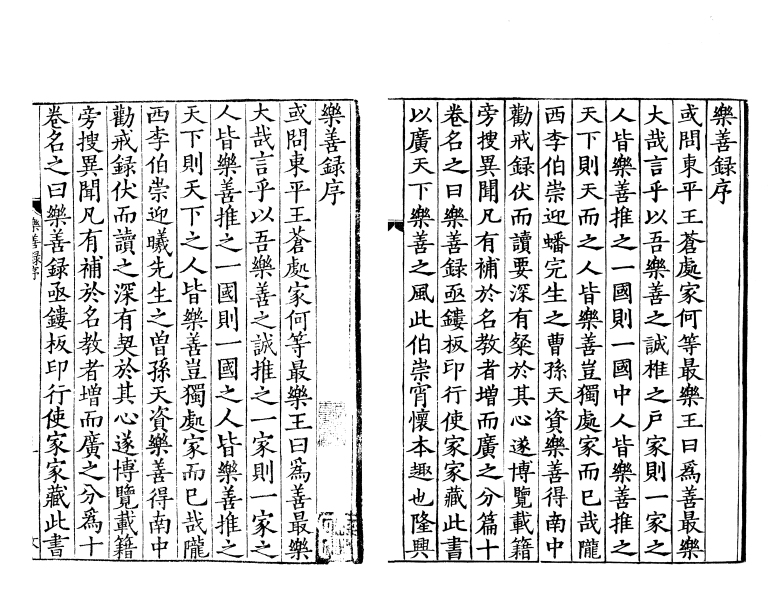 樂善録序
或問東平王蒼處家何等最樂王曰爲善最樂
大哉言乎以吾樂善之誠椎之戸家則一家之
人皆樂善推之一國則一國中人皆樂善推之
天下則天而之人皆樂善豈獨處家而已哉隴
西李伯崇迎蟠完生之曹孫天資樂善得南中
勸戒録伏而讀要深有粲於其心遂博覽載籍
旁搜異聞凡有補於名教者増而廣之分篇十
卷名之曰樂善録亟鏤板印行使家家藏此書
以廣天下樂善之風此伯崇宵懷本趣也隆興
樂善録序
或問東平王蒼處家何等最樂王曰爲善最樂
大哉言乎以吾樂善之誠推之一家則一家之
人皆樂善推之一國則一國之人皆樂善推之
天下則天下之人皆樂善豈獨處家而巳哉隴
西李伯崇迎曦先生之曽孫天資樂善得南中
勸戒録伏而讀之深有契於其心遂博覽載籍
旁搜異聞凡有補於名教者増而廣之分爲十
卷名之曰樂善録亟鏤板印行使家家藏此書
樂善録序